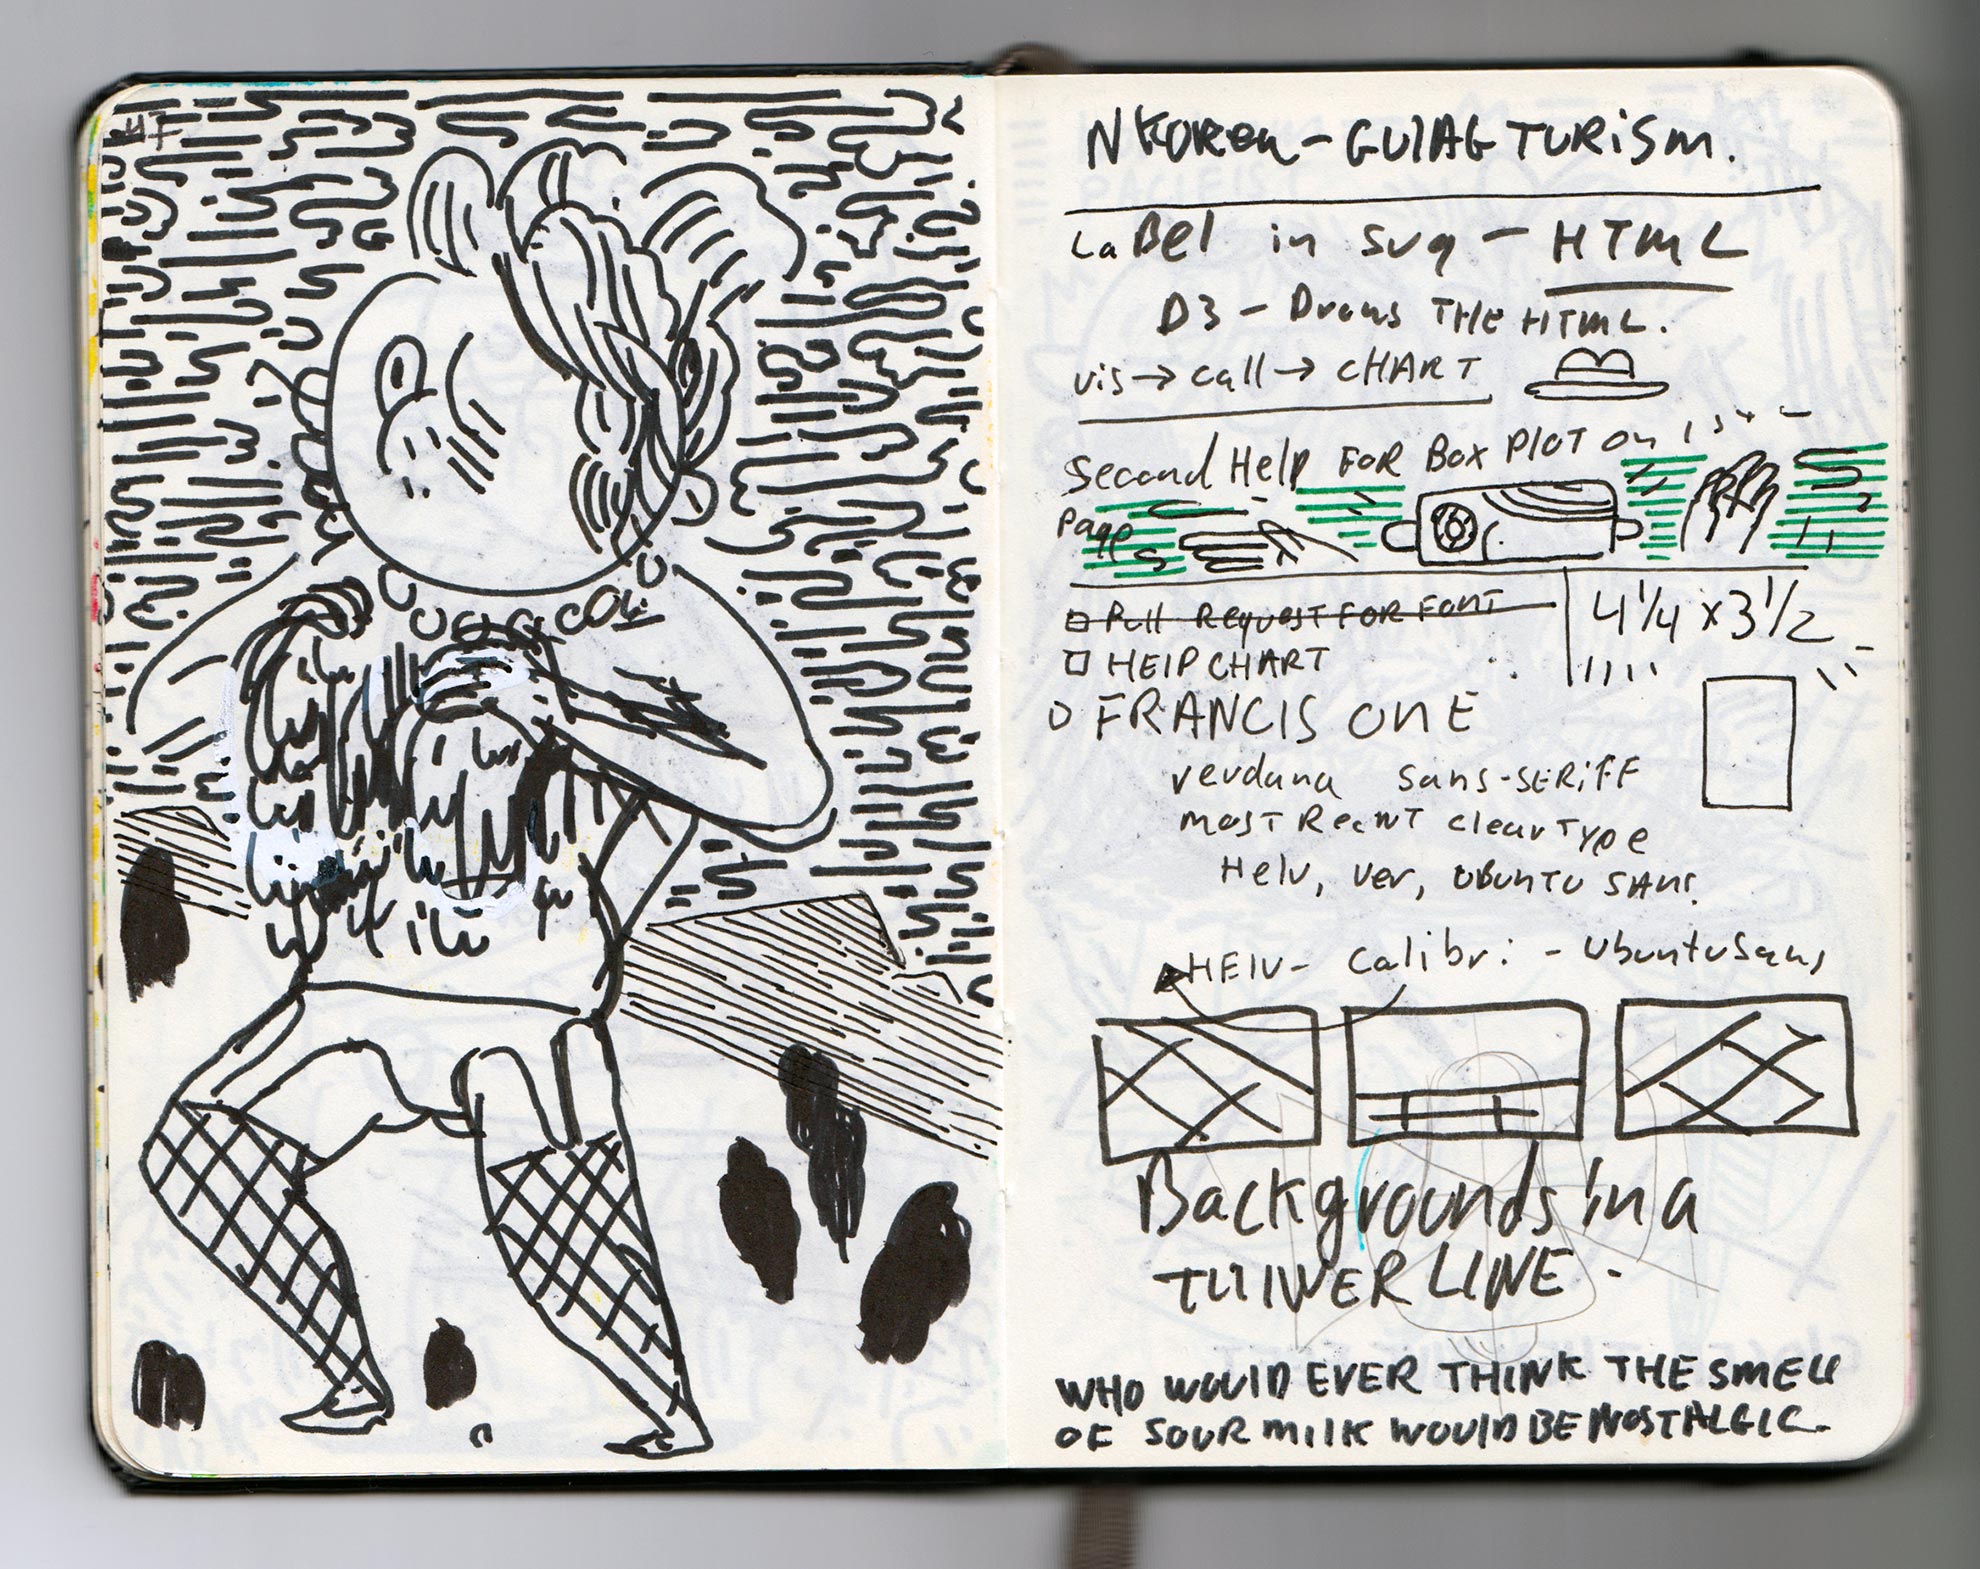 N KOREA - GULAG TURISM.
LaBel in svg - HTML
D3 - Draws THE HTML.
vis → call → CHART
Second Help FOR BOX PLOT on 1st
Page
Pull Request FOR FONT
4 1/4 x 3 1/2
HELP CHART
FRANCIS ONE
verdana sans-SERIFF
most Recent clear Type
Helv, ver, UBUNTU SANS
HElv - Calibri - Ubuntu Sans
Backgrounds in a
LINE.
WHO WOULD EVER THINK THE SMELL
OF SOUR MILK WOULD BE NOSTALGIC.